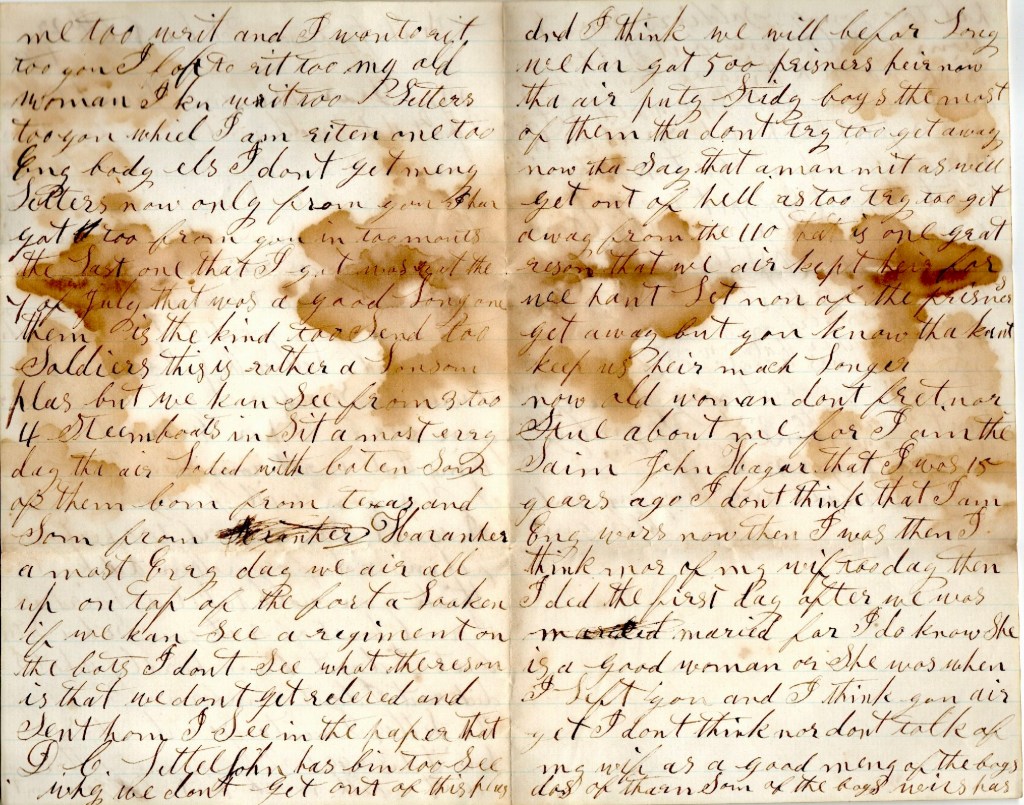 me too writ and I won to rit
too you I hof to rit too my old
woman I kn writ too 2 Letters
too you whiel I am riten one too
Eny body els I dont get meny
Letters now only from you I har
got 4 too from you in too monts
the Last one that I got was get the
7 of July that was a good Long one
them is the kind too Send too
Soldiers this is rather a Lonsom
plas but we kan See from 3 too
4 Steemboats in Sit a most erry
day the air Loded with boten Som
of them bom from texas and
Som from Haranker
a most Erry day we air all
up on top of the fort a Looken
if we kan See a regiment on
the bots I dont See what the reson
is that we dont get relered and
Sent hom I See in the paper that
D. C. Littel John has bin too See
why we dont get out of this plas
and I think we will befor Long
we har got 500 prisners heir now
tha air puty Stidy boys the most
of them tha dont try too get away
now tha Say that a man mit as well
get out of hell as too try too get
away from the 110 that is one grat
reson that we air kept heir for
wee hant Let non of the prisners
get away but you know tha kant
keep us heir much Longer
now old woman dont fret nor
Stue about me for I am the
Saim John Hagar that I was 15
years ago I dont think that I am
Eny wors now then I was then I
think mor of my wif too day then
I ded the first day after we was
maried maried for I do know She
is a good woman or She was when
I Left you and I think you air
yet I dont think nor dont talk of
my wif as a good meny of the boys
dos of tharn Som of the boys neirs has